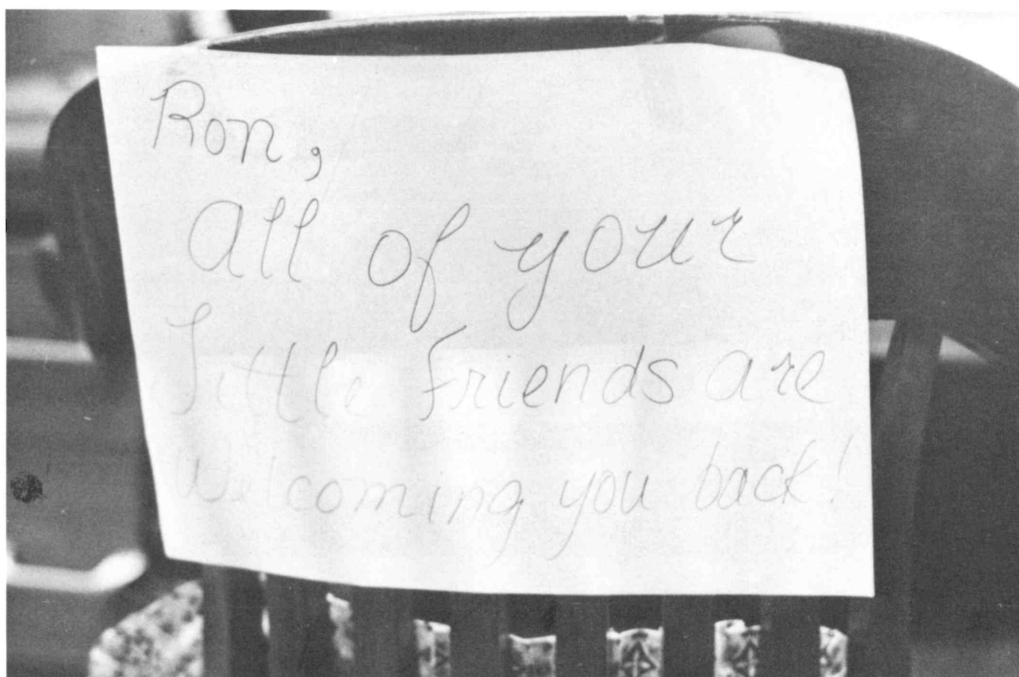 Ron,
All of your
Little friends are
Welcoming you back!